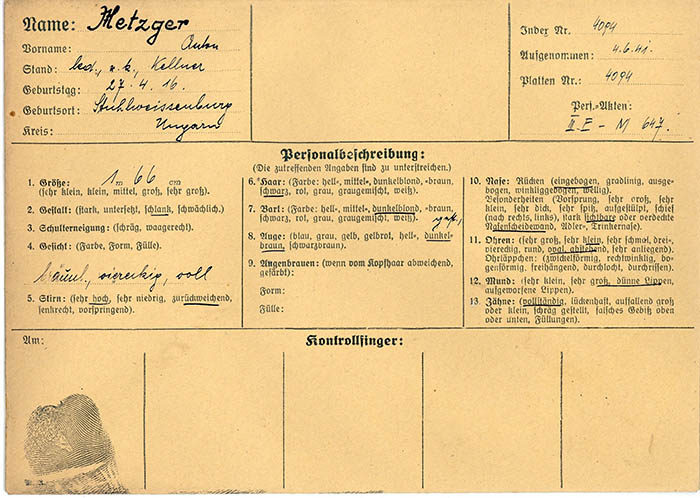 Name: Metzger
Vorname: Anton
Stand: led., r. k., Kellner
Geburtstag: 27. 4. 16.
Geburtsort: Stuhlweissenburg
Kreis: Ungarn
Index Nr. 4094
Aufgenommen: 4.6.41.
Platten Nr.: 4094
Pers.-Akten:
II. E – M 647.
Personalbeschreibung:
(Die zutreffenden Angaben sind zu unterstreichen.)
1. Größe: 1 m 66 cm
(sehr klein, klein, mittel, groß, sehr groß).
2. Gestalt: (stark, untersetzt, schlank, schwächlich.)
3. Schulterneigung: (schräg, waagerecht.)
4. Gesicht: (Farbe, Form, Fülle).
viereckig, voll
5. Stirn: (sehr hoch, sehr niedrig, zurückweichend,
senkrecht, vorspringend).
6. Haar: (Farbe: hell-, mittel-, dunkelblond, -braun,
schwarz, rot, grau, graugemischt, weiß).
7. Bart: (Farbe: hell-, mittel-, dunkelblond, -braun,
schwarz, rot, grau, graugemischt, weiß).
8. Auge: (blau, grau, gelb, gelbrot, hell-, dunkel-
braun, schwarzbraun).
9. Augenbrauen: (wenn vom Kopfhaar abweichend,
gefärbt):
Form:
Fülle:
10. Nase: Rücken (eingebogen, gradlinig, ausge-
bogen, winkliggebogen, wellig).
Besonderheiten (Vorsprung, sehr groß, sehr
klein, sehr dick, sehr spitz, aufgestülpt, schief
(nach rechts, links), stark sichtbare oder verdeckte
Nasenscheidewand, Adler-, Trinkernase).
11. Ohren: (sehr groß, sehr klein, sehr schmal, drei-
viereckig, rund, oval, abstehend, sehr anliegend).
Ohrläppchen: (zwickelförmig, rechtwinklig, bo-
genförmig, freihängend, durchlocht, durchrissen).
12. Mund: (sehr klein, sehr groß, dünne Lippen,
aufgeworfene Lippen).
13. Zähne: (vollständig, lückenhaft, auffallend groß
oder klein, schräg gestellt, falsches Gebiß oben
oder unten, Füllungen).
Am:
Kontrollfinger: